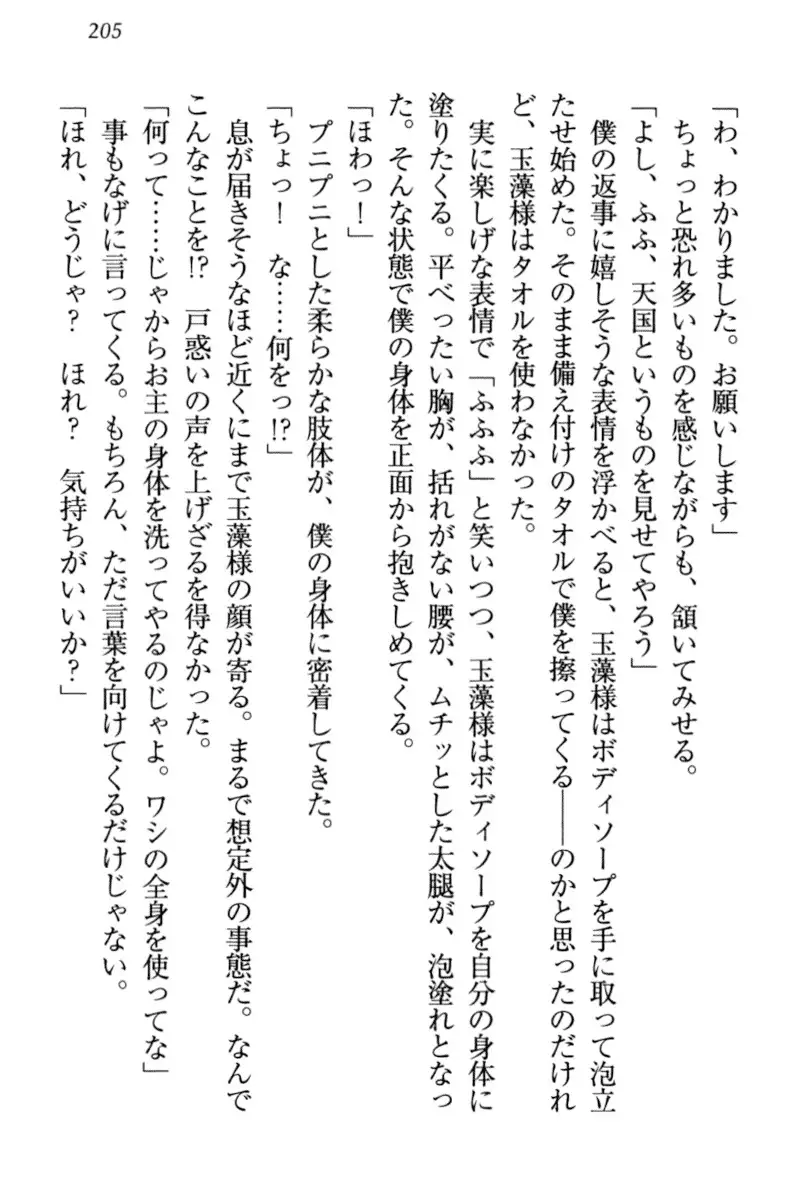 205
「わ、わかりました。お願いします」
ちょっと恐れ多いものを感じながらも、頷いてみせる。
「よし、ふふ、天国というものを見せてやろう」
僕の返事に嬉しそうな表情を浮かべると、玉藻様はボディソープを手に取って泡立
たせ始めた。そのまま備え付けのタオルで僕を擦ってくる――のかと思ったのだけれ
ど、玉藻様はタオルを使わなかった。
実に楽しげな表情で「ふふふ」と笑いつつ、玉藻様はボディソープを自分の身体に
塗りたくる。平べったい胸が、括れがない腰が、ムチッとした太腿が、泡塗れとなっ
た。そんな状態で僕の身体を正面から抱きしめてくる。
「ほわっ！」
プニプニとした柔らかな肢体が、僕の身体に密着してきた。
「ちょっ！　な……何をっ!?」
息が届きそうなほど近くにまで玉藻様の顔が寄る。まるで想定外の事態だ。なんで
こんなことを!?　戸惑いの声を上げざるを得なかった。
「何って……じゃからお主の身体を洗ってやるのじゃよ。ワシの全身を使ってな」
事もなげに言ってくる。もちろん、ただ言葉を向けてくるだけじゃない。
「ほれ、どうじゃ？　ほれ？　気持ちがいいか？」